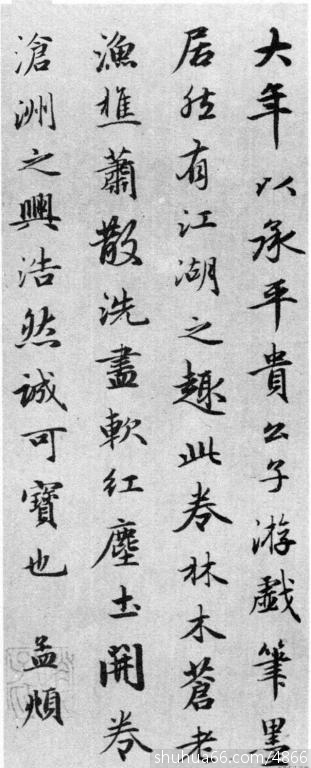 大年以承平貴公子游戲筆墨
居然有江湖之趣此卷林木蒼老
漁樵蕭散洗盡軟紅塵土開卷
滄洲之興浩然誠可寶也 孟頫
shuhua66.com/4866